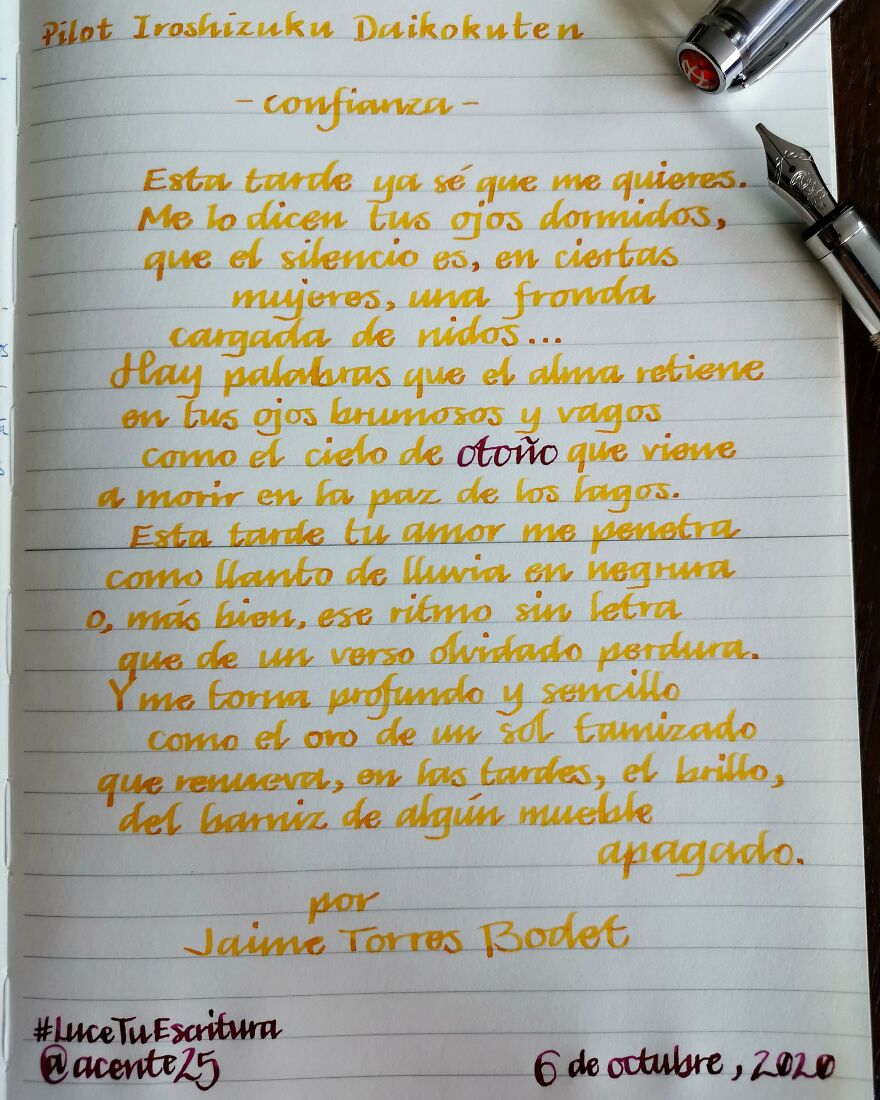 Pilot Iroshizuku Daikokuten
- confianza -
Esta tarde ya sé que me quieres.
Me lo dicen tus ojos dormidos,
que el silencio es, en ciertas
mujeres, una fronda
cargada de nidos...
Hay palabras que el alma retiene
en tus ojos brumosos y vagos
como el cielo de otoño que viene
a morir en la paz de los lagos.
Esta tarde tu amor me penetra
como llanto de lluvia en negrura
o, más bien, ese ritmo sin letra
que de un verso olvidado perdura.
Y me torna profundo y sencillo
como el oro de un sol tamizado
que renueva, en las tardes, el brillo,
del barniz de algún mueble
apagado.
por
Jaime Torres Bodet
#LuceTuEscritura
@acente25
6 de octubre, 2020